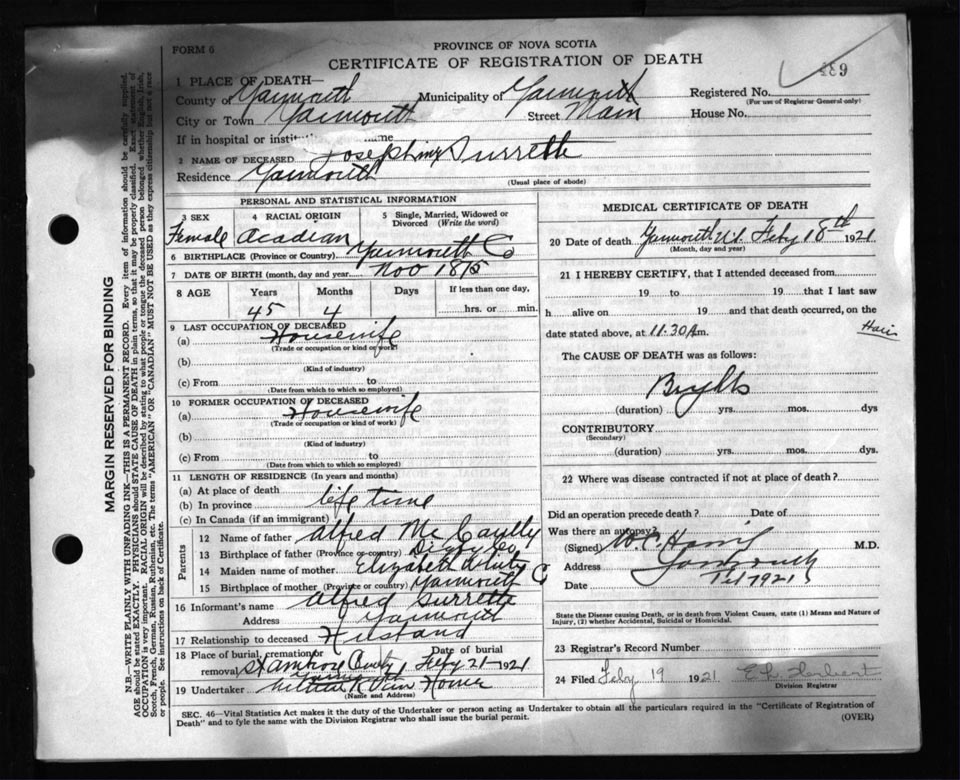 FORM 6
PROVINCE OF NOVA SCOTIA
CERTIFICATE OF REGISTRATION OF DEATH
489
1 PLACE OF DEATH—
County of Yarmouth Municipality of Yarmouth Registered No.
(For use of Registrar General only)
City or Town Yarmouth Street Main House No.
If in hospital or name
2 NAME OF DECEASED Josephine Surrette
Residence Yarmouth
(Usual place of abode)
PERSONAL AND STATISTICAL INFORMATION
3 SEX 4 RACIAL ORIGIN 5 Single, Married, Widowed or Divorced (Write the word)
Female Acadian
6 BIRTHPLACE (Province or Country) Yarmouth Co
7 DATE OF BIRTH (month, day and year) Nov 1875
8 AGE Years Months Days If less than one day,
45 4 hrs. or min.
9 LAST OCCUPATION OF DECEASED
(a) Housewife
(Trade or occupation or kind of work)
(b)
(Kind of industry)
(c) From to
(Date from which to which so employed)
10 FORMER OCCUPATION OF DECEASED
(a) Housewife
(Trade or occupation or kind of work)
(b)
(Kind of industry)
(c) From to
(Date from which to which so employed)
11 LENGTH OF RESIDENCE (In years and months)
(a) At place of death
(b) In province life time
(c) In Canada (if an immigrant)
Parents
12 Name of father Alfred Mc Caully
13 Birthplace of father (Province or country) Digby Co
14 Maiden name of mother Elizabeth
15 Birthplace of mother (Province or country) Yarmouth Co
16 Informant's name Alfred Surrette
Address Yarmouth
17 Relationship to deceased Husband
18 Place of burial, cremation or removal Date of burial
Feby 21-1921
Yarmouth
19 Undertaker Van Horne
(Name and Address)
MEDICAL CERTIFICATE OF DEATH
20 Date of death Yarmouth N.S. Feby 18th 1921
(Month, day and year)
21 I HEREBY CERTIFY, that I attended deceased from
19 to 19 that I last saw
h alive on 19 and that death occurred, on the
date stated above, at 11.30 A m.
The CAUSE OF DEATH was as follows:
Brights
(duration) yrs. mos. dys
CONTRIBUTORY
(Secondary)
(duration) yrs. mos. dys.
22 Where was disease contracted if not at place of death?
Did an operation precede death? Date of
Was there an autopsy?
(Signed) M.D.
Address Yarmouth
Date 1921
State the Disease causing Death, or in death from Violent Causes, state (1) Means and Nature of
Injury, (2) whether Accidental, Suicidal or Homicidal.
23 Registrar's Record Number
24 Filed Feby 19 1921
Division Registrar
SEC. 46—Vital Statistics Act makes it the duty of the Undertaker or person acting as Undertaker to obtain all the particulars required in the "Certificate of Registration of
Death" and to fyle the same with the Division Registrar who shall issue the burial permit. (OVER)
MARGIN RESERVED FOR BINDING
N.B.—WRITE PLAINLY WITH UNFADING INK—THIS IS A PERMANENT RECORD. Every item of information should be carefully supplied.
AGE should be stated EXACTLY. PHYSICIANS should STATE CAUSE OF DEATH in plain terms, so that it may be properly classified. Exact statement of
OCCUPATION is very important. RACIAL ORIGIN will be described by stating to what people or tongue the deceased person belonged whether English, Irish,
Scotch, French, German, Russian, Ruthenian, etc. The terms "AMERICAN" OR "CANADIAN" MUST NOT BE USED as they express citizenship but not a race
or people. See instructions on back of Certificate.